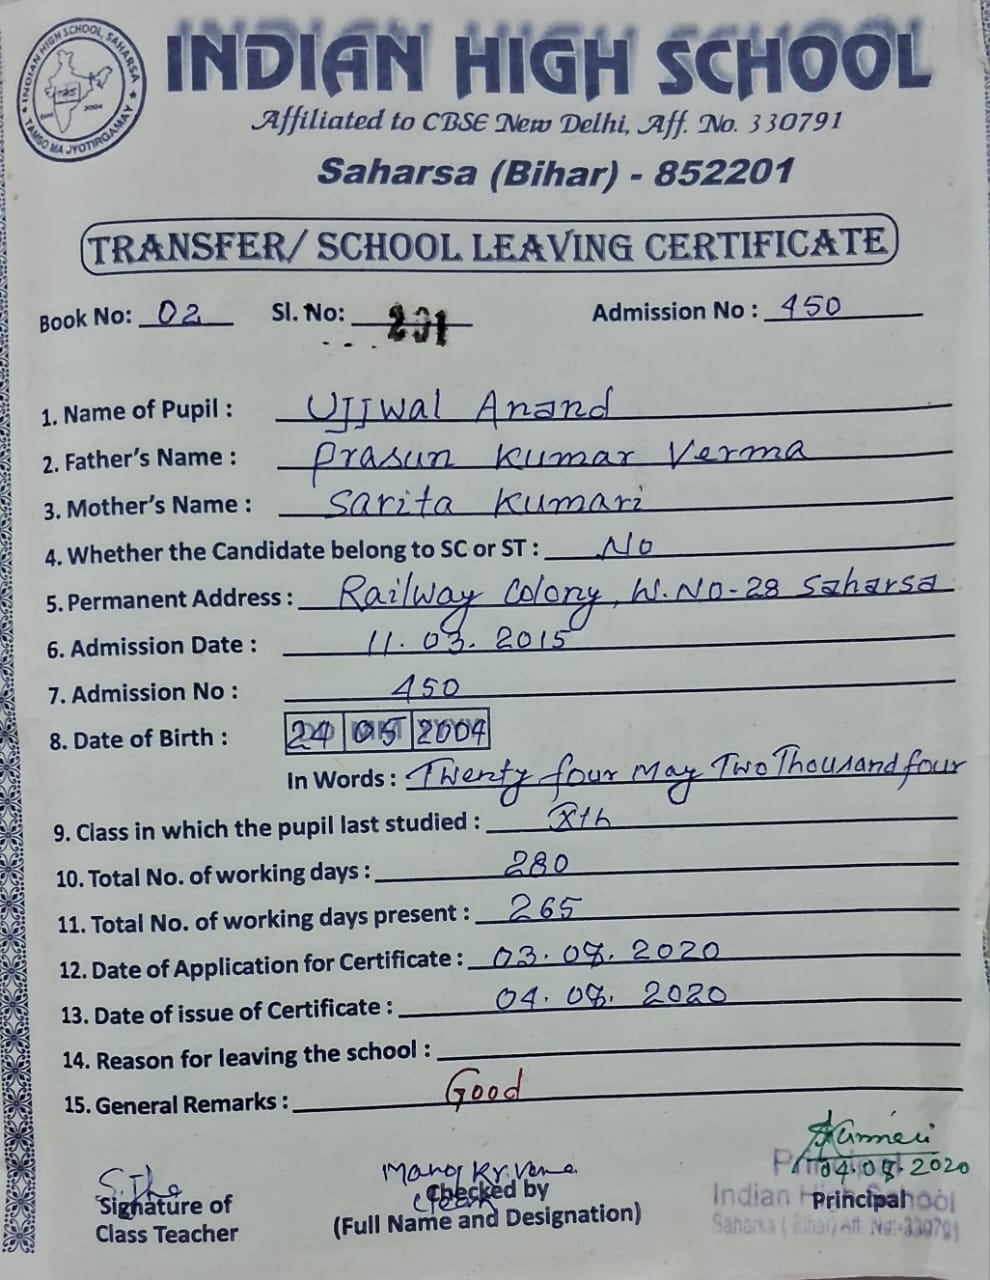 INDIAN HIGH SCHOOL, SAHARSA
TAMSO MA JYOTIRGAMAY
INDIAN HIGH SCHOOL
Affiliated to CBSE New Delhi, Aff. No. 330791
Saharsa (Bihar) - 852201
TRANSFER/ SCHOOL LEAVING CERTIFICATE
Book No: 02 Sl. No: 201 Admission No : 450
1. Name of Pupil : Ujjwal Anand
2. Father's Name : Prasun Kumar Verma
3. Mother's Name : Sarita Kumari
4. Whether the Candidate belong to SC or ST : No
5. Permanent Address : Railway Colony, W.No-28 Saharsa
6. Admission Date : 11.03.2015
7. Admission No : 450
8. Date of Birth : 24 05 2004
In Words : Twenty four May Two Thousand four
9. Class in which the pupil last studied : Xth
10. Total No. of working days : 280
11. Total No. of working days present : 265
12. Date of Application for Certificate : 03.08.2020
13. Date of issue of Certificate : 04.08.2020
14. Reason for leaving the school :
15. General Remarks : Good
04.08.2020
Signature of
Class Teacher
Manoj Kr.
Checked by
(Full Name and Designation)
Principal
Indian High School
Principal
Saharsa (Bihar) Aff. No.-330791